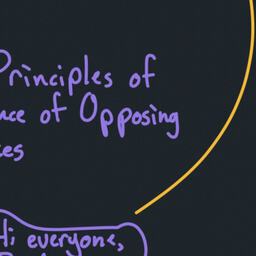 Principles of
nce of Opposing
ces
Hi everyone,